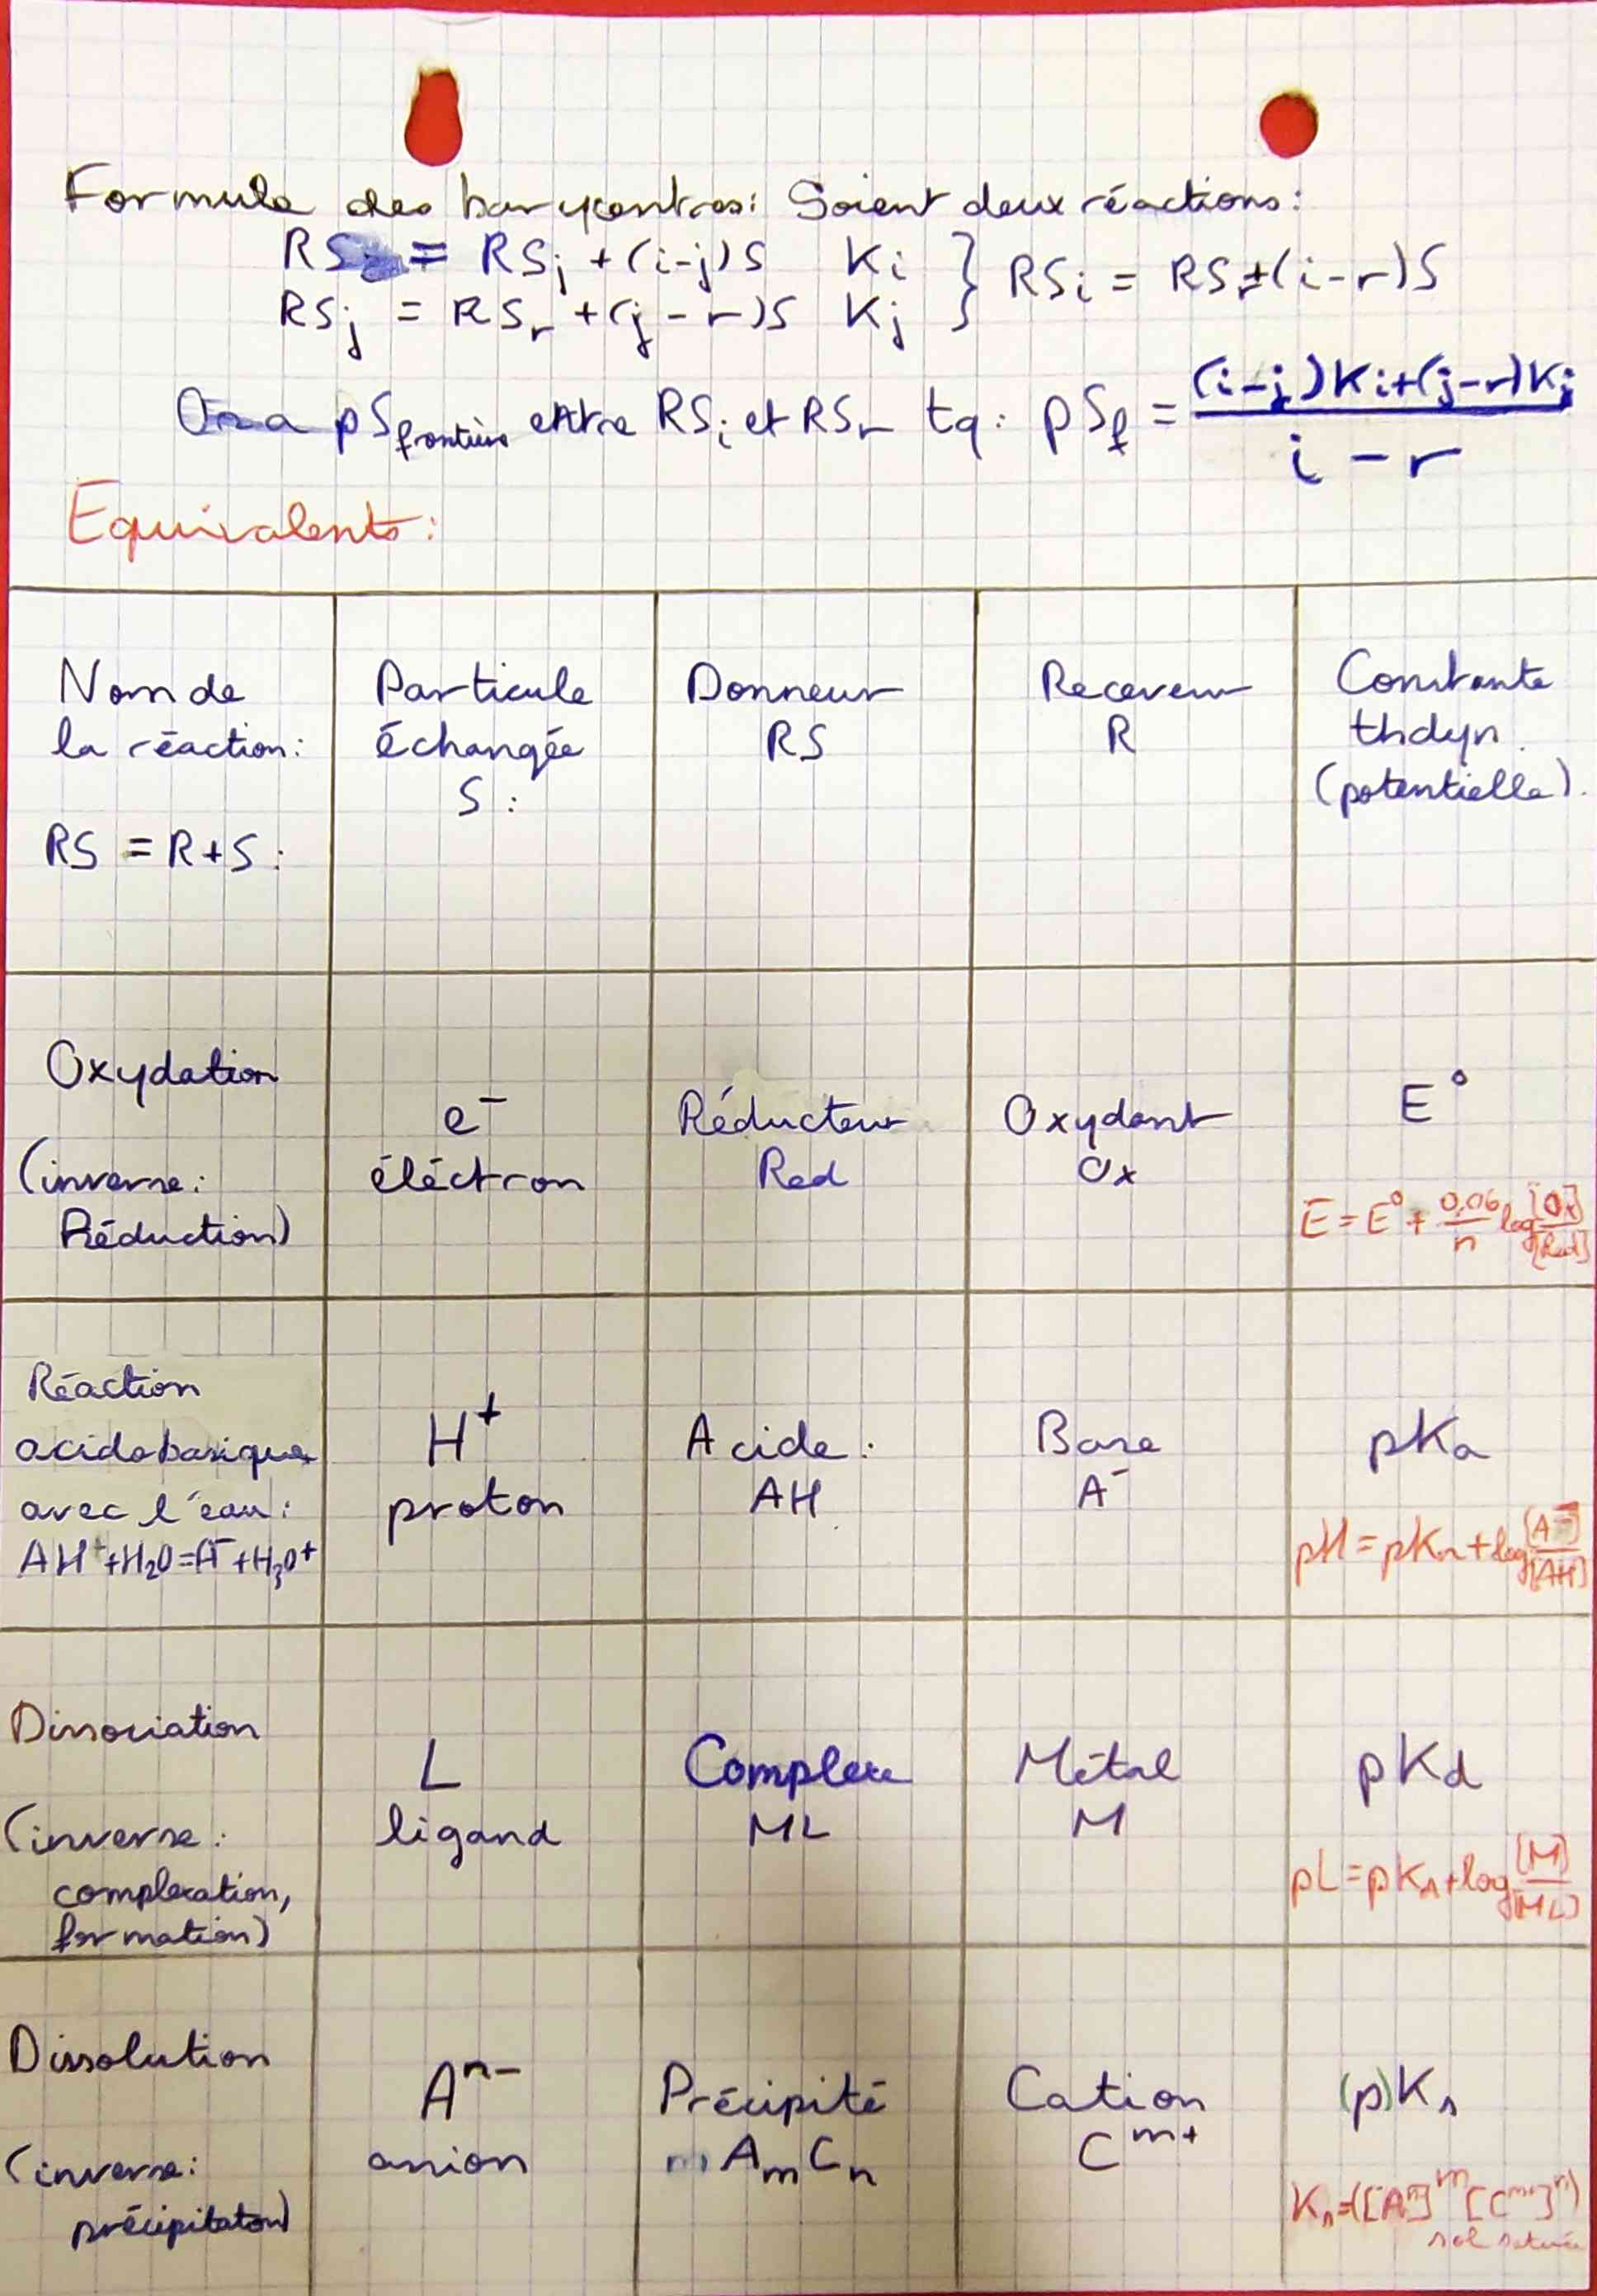 Formule des barycentres: Soient deux réactions:
RS = RSj + (i-j)S Ki } RSi = RSr + (i-r)S
RSj = RSr + (j-r)S Kj
On a pSfrontière entre RSi et RSr tq: pSf = ((i-j)Ki+(j-r)Kj)/(i-r)
Equivalents:
Nom de
la réaction:
RS = R+S:
Particule
échangée
S:
Donneur
RS
Receveur
R
Constante
thdyn.
(potentielle).
Oxydation
(inverse:
Réduction)
e⁻
éléctron
Réducteur
Red
Oxydant
Ox
E°
E = E° + 0,06/n log [Ox]/[Red]
Réaction
acidobasique
avec l'eau:
AH⁺+H₂O=A⁻+H₃O⁺
H⁺
proton
Acide:
AH
Base
A⁻
pKa
pH = pKa + log [A⁻]/[AH]
Dissociation
(inverse:
complexation,
formation)
L
ligand
Complexe
ML
Métal
M
pKd
pL = pKd + log [M]/[ML]
Dissolution
(inverse:
précipitaton)
Aⁿ⁻
anion
Précipité
AmCn
Cation
Cᵐ⁺
(p)Ks
Ks=([Aⁿ⁻]ᵐ [Cᵐ⁺]ⁿ)
sol saturée